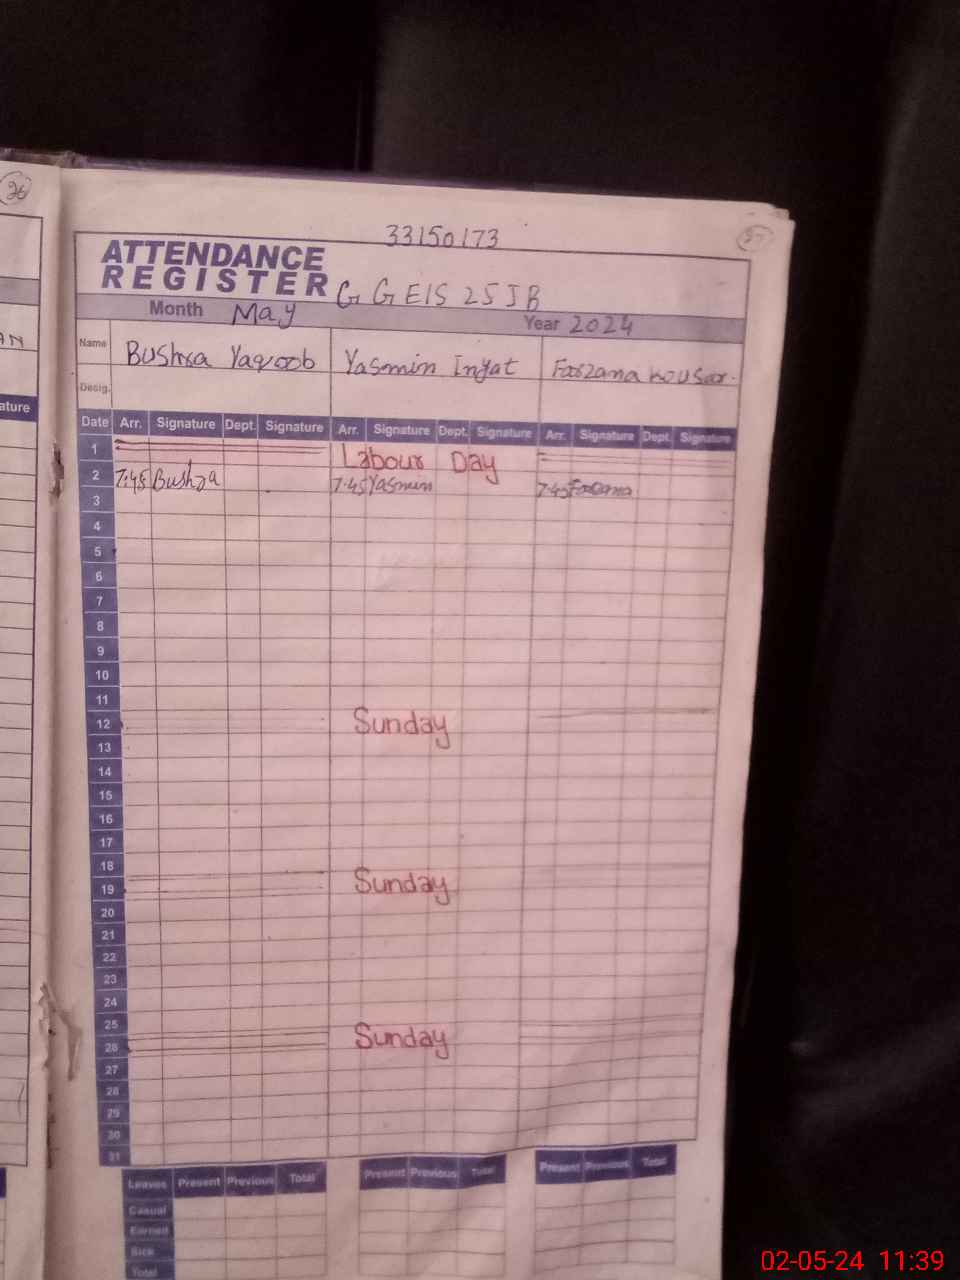 26
33150173
27
ATTENDANCE
REGISTER G GEIS 25 JB
Month May Year 2024
Name Bushra Yaqoob Yasmin Inyat Farzana Kousar.
Desig.
ature
Date Arr. Signature Dept. Signature Arr. Signature Dept. Signature Arr. Signature Dept. Signature
1 Labour Day
2 7:45 Bushra 7:45 Yasmin 7:45 Farzana
3
4
5
6
7
8
9
10
11
12 Sunday
13
14
15
16
17
18
19 Sunday
20
21
22
23
24
25
26 Sunday
27
28
29
30
31
Leaves Present Previous Total Present Previous Total Present Previous Total
Casual
Earned
Sick
Total
02-05-24 11:39